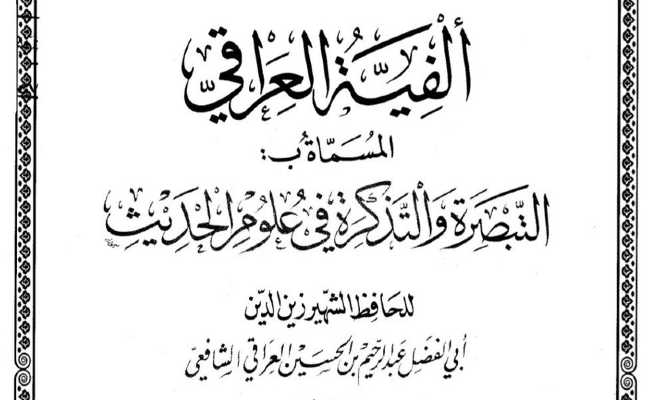 ألفية العراقي
المسماة بـ:
التبصرة والتذكرة في علوم الحديث
للحافظ الشهير زين الدين
أبي الفضل عبد الرحيم بن الحسين العراقي الشافعي